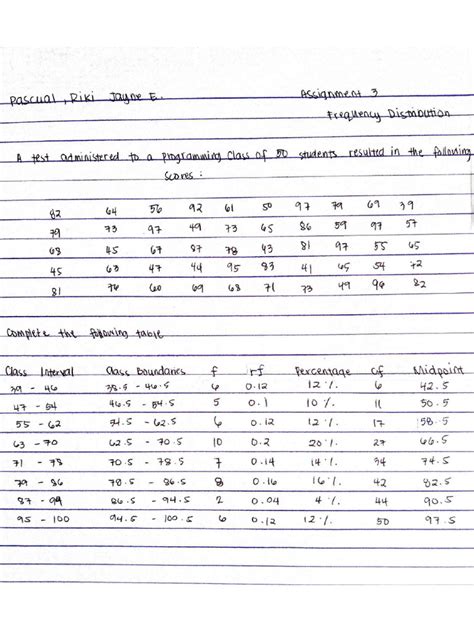 Pascual, Riki Jayne E. Assignment 3
Frequency Distribution
A test administered to a programming class of 50 students resulted in the following
scores :
82 64 56 92 61 50 97 79 69 39
79 73 97 49 73 65 86 59 97 57
68 45 67 87 78 43 81 97 55 65
45 63 47 44 95 83 41 65 54 72
81 76 60 69 68 71 73 49 96 82
Complete the following table
Class Interval Class Boundaries f rf Percentage cf Midpoint
39 - 46 38.5 - 46.5 6 0.12 12 % 6 42.5
47 - 54 46.5 - 54.5 5 0.1 10 % 11 50.5
55 - 62 54.5 - 62.5 6 0.12 12 % 17 58.5
63 - 70 62.5 - 70.5 10 0.2 20 % 27 66.5
71 - 78 70.5 - 78.5 7 0.14 14 % 34 74.5
79 - 86 78.5 - 86.5 8 0.16 16 % 42 82.5
87 - 94 86.5 - 94.5 2 0.04 4 % 44 90.5
95 - 100 94.5 - 100.5 6 0.12 12 % 50 97.5